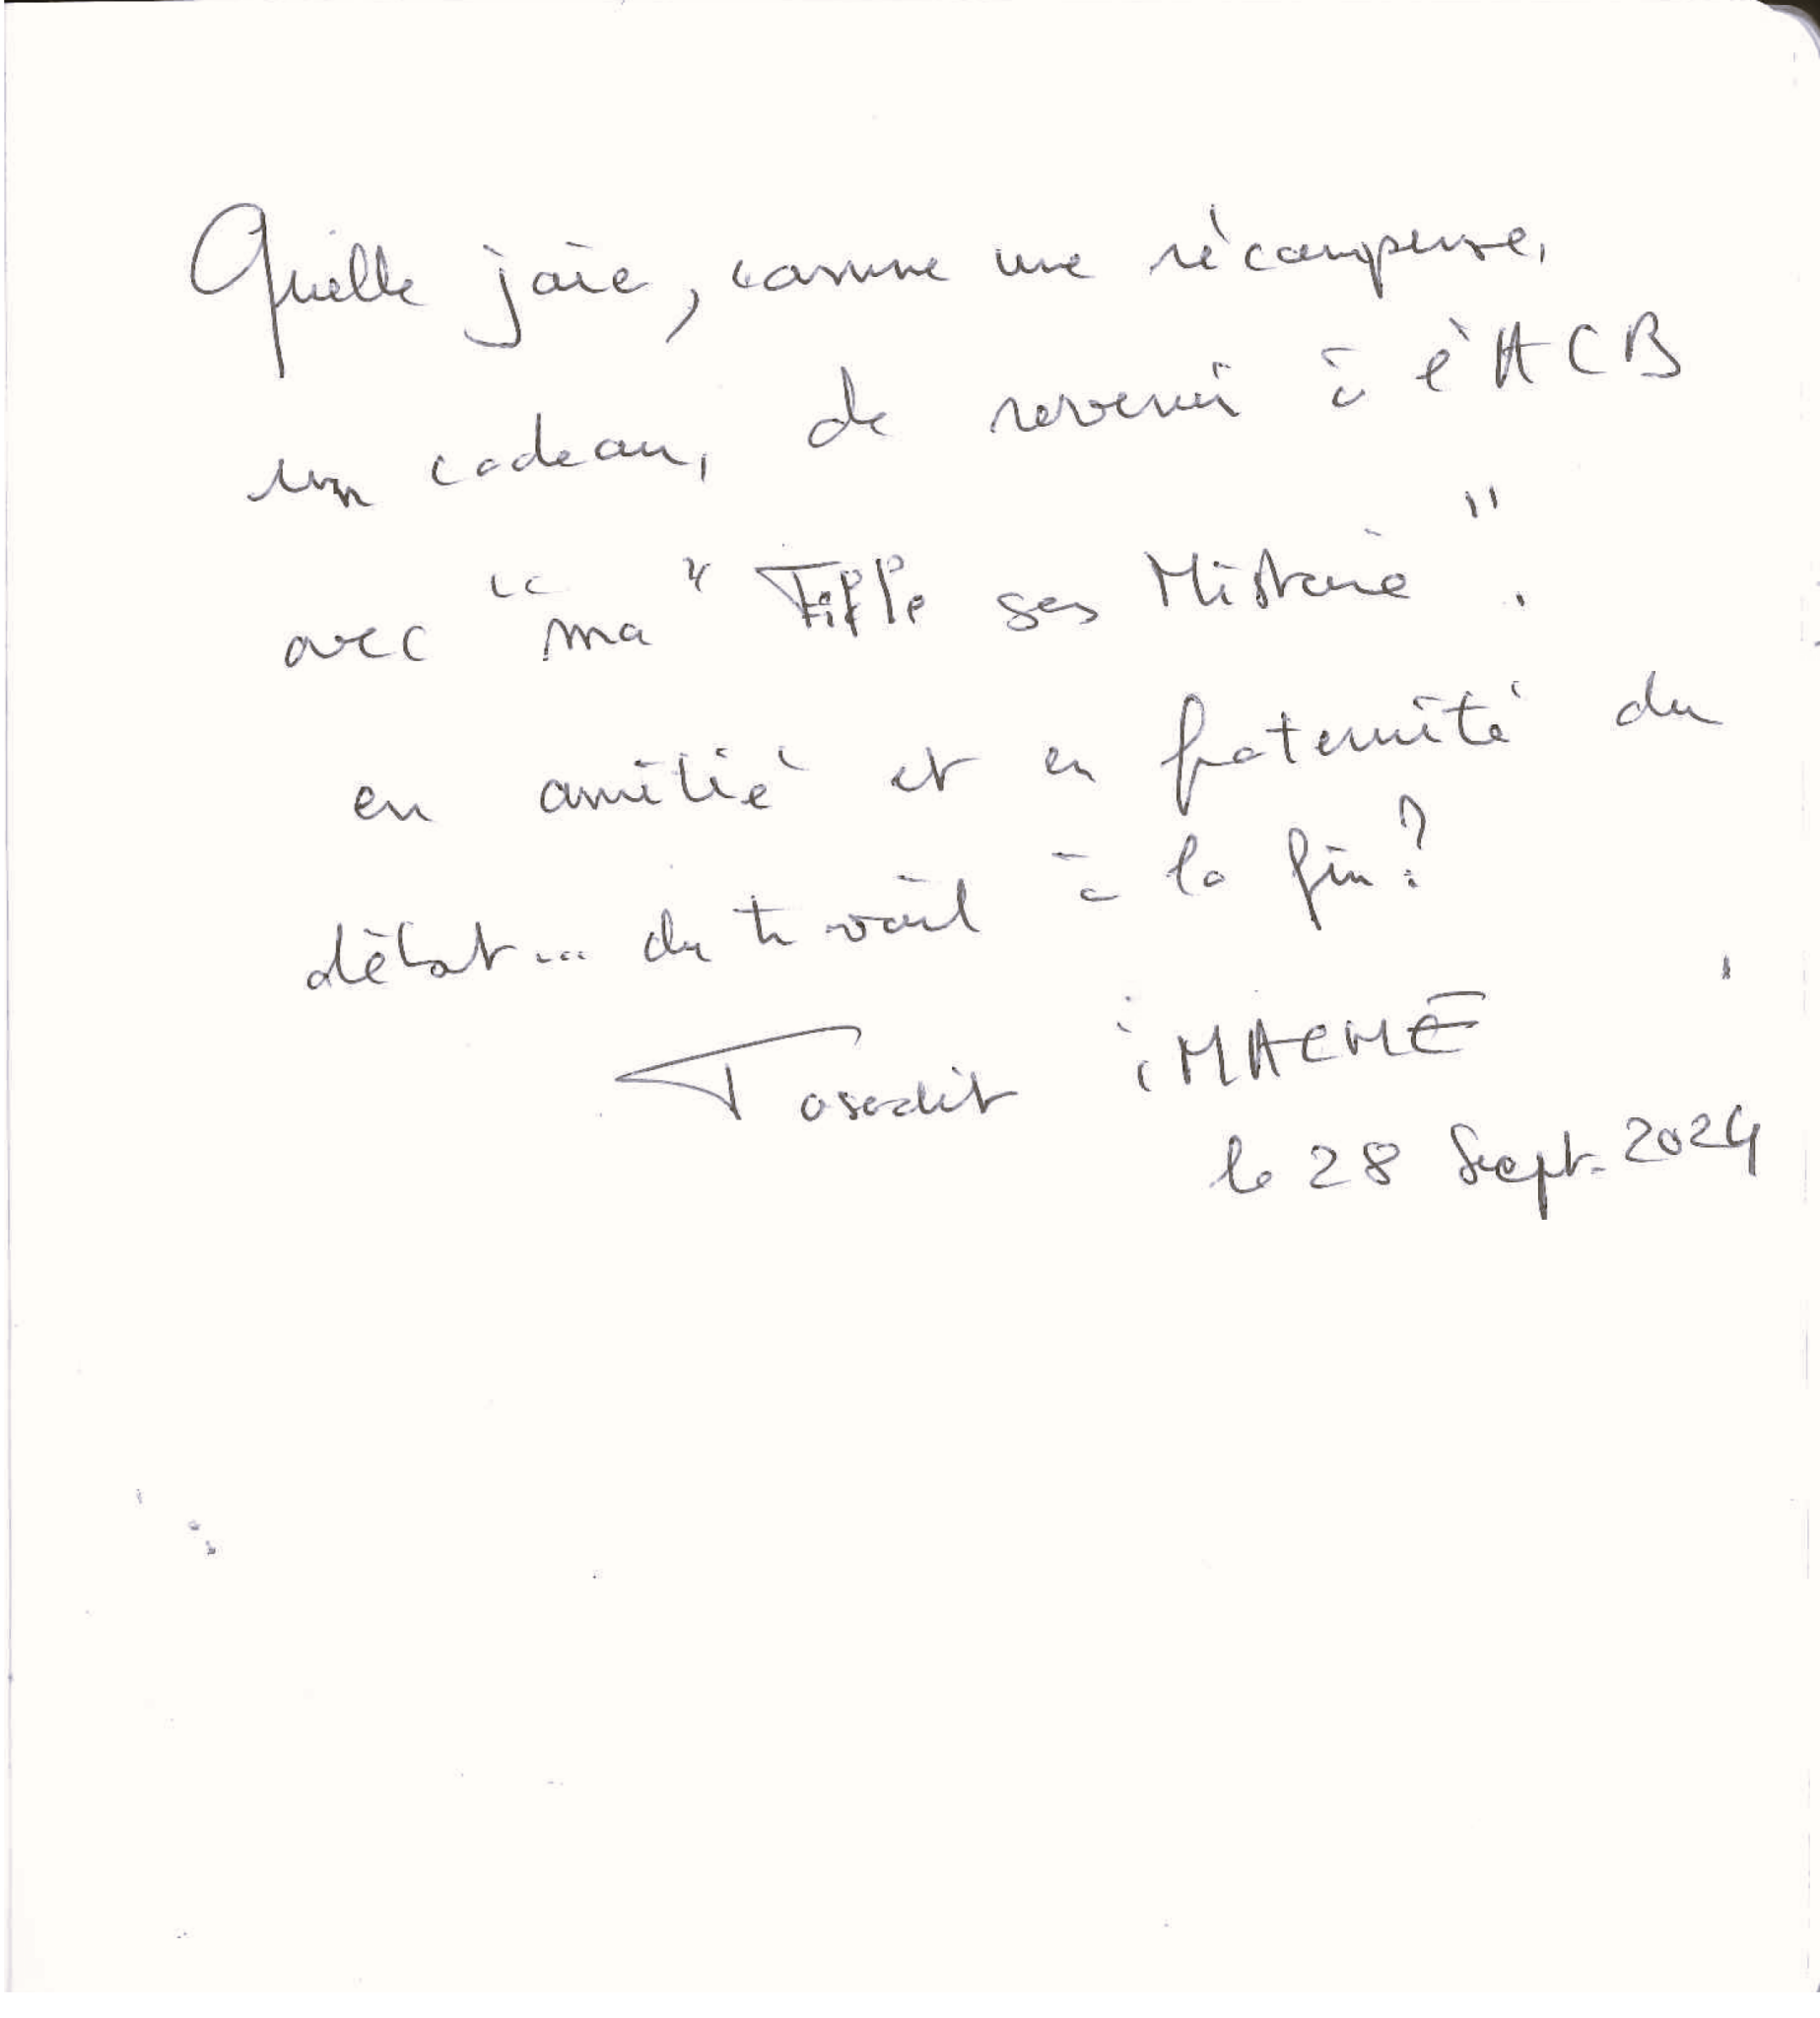 Quelle joie, comme une récompense,
un cadeau, de revenir à l'ACB
avec "ma" Fille sans Histoire".
en amitié et en fraternité du
début... du travail à la fin?
Tassadit IMACHE
le 28 Sept. 2024